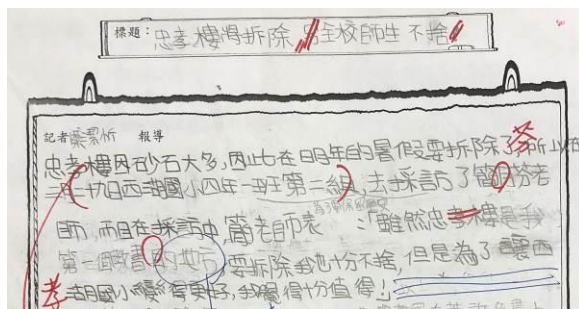 標題：忠孝樓將拆除 全校師生不捨
記者 報導
忠孝樓因砂石太多，因此在明年的暑假要拆除了，所以在
二月十九日西湖國小四年一班第二組，去採訪了簡 老
師，而且在採訪中，簡老師表 ：「雖然忠孝樓是我
第一個教書的地方，要拆除我也十分不捨，但是為了讓西
湖國小變得更好，我覺得十分值得！